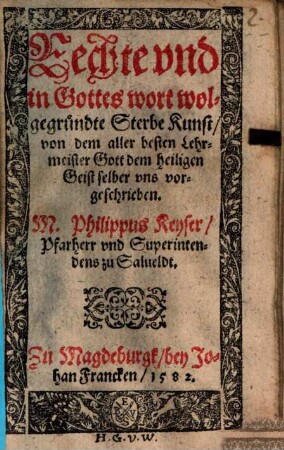 2.
Rechte vnd
in Gottes wort wol-
gegründte Sterbe Kunst/
von dem aller besten Lehr-
meister Gott dem heiligen
Geist selber vns vor-
geschrieben.
M. Philippus Keyser/
Pfarherr vnd Superinten-
dens zu Salueldt.
Zu Magdeburgk/bey Jo-
han Francken/1582.
H. G. V. W.